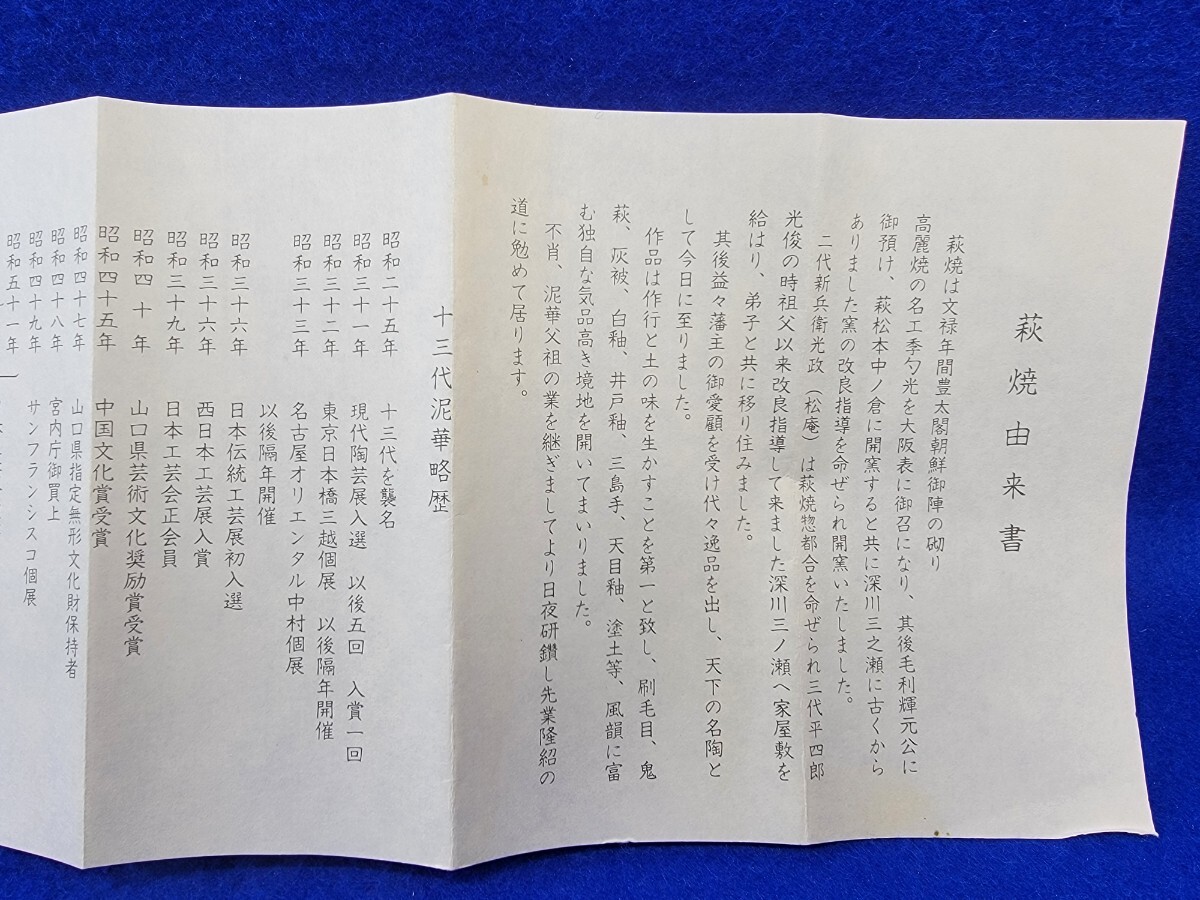 萩焼由来書
萩焼は文禄年間豊太閤朝鮮御陣の砌り
高麗焼の名工季勺光を大阪表に御召になり、其後毛利輝元公に
御預け、萩松本中ノ倉に開窯すると共に深川三之瀬に古くから
ありました窯の改良指導を命ぜられ開窯いたしました。
二代新兵衛光政（松庵）は萩焼惣都合を命ぜられ三代平四郎
光俊の時祖父以来改良指導して来ました深川三ノ瀬へ家屋敷を
給はり、弟子と共に移り住みました。
其後益々藩主の御愛顧を受け代々逸品を出し、天下の名陶と
して今日に至りました。
作品は作行と土の味を生かすことを第一と致し、刷毛目、鬼
萩、灰被、白釉、井戸釉、三島手、天目釉、塗土等、風韻に富
む独自な気品高き境地を開いてまいりました。
不肖、泥華父祖の業を継ぎましてより日夜研鑽し先業隆紹の
道に勉めて居ります。
十三代泥華略歴
昭和二十五年 十三代を襲名
昭和三十一年 現代陶芸展入選 以後五回 入賞一回
昭和三十二年 東京日本橋三越個展 以後隔年開催
昭和三十三年 名古屋オリエンタル中村個展
以後隔年開催
昭和三十六年 日本伝統工芸展初入選
昭和三十六年 西日本工芸展入賞
昭和三十九年 日本工芸会正会員
昭和四十年 山口県芸術文化奨励賞受賞
昭和四十五年 中国文化賞受賞
昭和四十七年 山口県指定無形文化財保持者
昭和四十八年 宮内庁御買上
昭和四十九年 サンフランシスコ個展
昭和五十一年